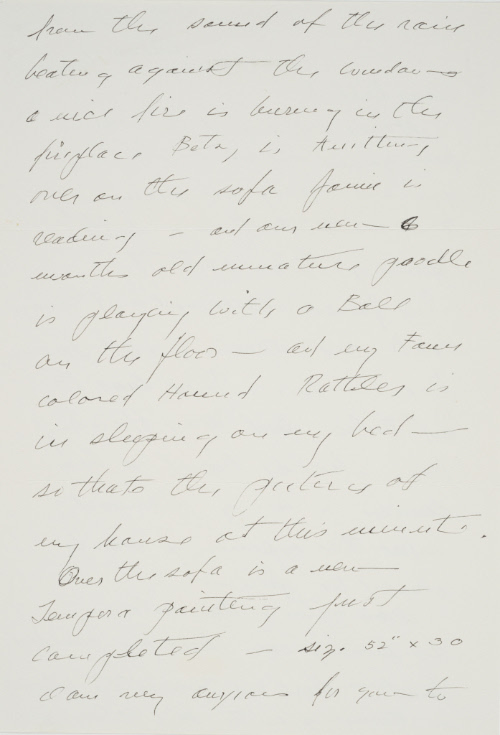 from the sound of the rain
beating against the window —
a nice fire is burning in the
fireplace Betsy is knitting
over on the sofa Jamie is
reading — and our new 6
months old miniature poodle
is playing with a Ball
on the floor — and my Fawn
colored Hound Rattler is
in sleeping on my bed —
so thats the picture of
my house at this minute.
Over the sofa is a new
Tempera painting just
completed — size 52" x 30
I am very anxious for you to